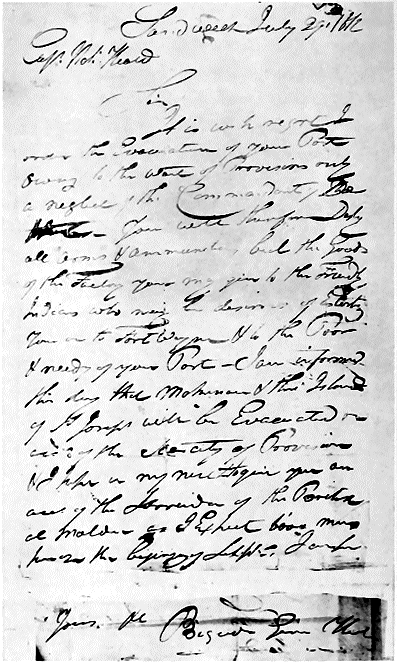 Sandwich July 29. 1812
Capt. Nat. Heald
Sir
It is with regret I
order the Evacuation of your Post
owing to the want of Provisions only
a neglect of the Commandant of
You will therefore Destroy
all arms & ammunition, but the Goods
of the Factory you may give to the Friendly
Indians who may be desirous of Escorting
you on to Fort Wayne & to the Poor
& needy of your Post — I am informed
this day that Makinac & the Island
of St Joseph will be Evacuated on
acct of the scarcity of Provision
& I hope in my next to give you an
acct of the Surrender of the British
at Malden as I Expect 600 men
here by the beginning of Sept.
Yours &c
Brigade Genl Hull